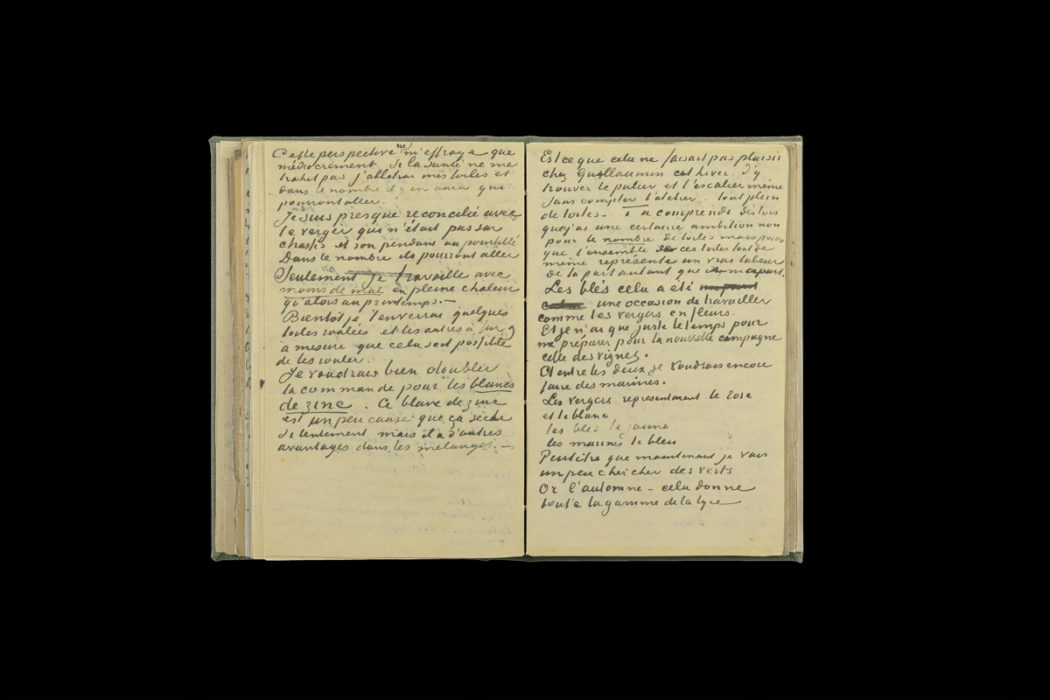 Cette perspective ne m'effraye que
médiocrement. Si la santé ne me
trahit pas j'allotrai mes toiles et
dans le nombre il y en aura qui
pourront aller.
Je suis presque reconcilié avec
le verger qui n'était pas sur
chassis et son pendant au pointillé
Dans le nombre ils pourront aller
Seulement je travaille avec
moins de mal en pleine chaleur
qu'alors au printemps. —
Bientot je t'enverrai quelques
toiles roulées et les autres à fur &
à mesure que cela sera possible
de les rouler.
Je voudrais bien doubler
la commande pour les blancs
de zinc. Ce blanc de zinc
est un peu cause que ça sèche
si lentement mais il a d'autres
avantages dans les melanges. —
Est ce que cela ne faisait pas plaisir
chez Guillaumin cet hiver d'y
trouver le palier et l'escalier même
sans compter l'atelier tout plein
de toiles. Tu comprends dès lors
que j'ai une certaine ambition non
pour le nombre de toiles mais pour
que l'ensemble de ces toiles tout de
même représente un vrai labeur
de ta part autant que
Les blés cela a été
une occasion de travailler
comme les vergers en fleurs.
Et je n'ai que juste le temps pour
me préparer pour la nouvelle campagne
celle des vignes.
Et entre les deux je voudrais encore
faire des marines.
Les vergers representaient le rose
et le blanc,
les blés le jaune
les marines le bleu
Peutêtre que maintenant je vais
un peu chercher des verts
Or l'automne – cela donne
toute la gamme de la lyre